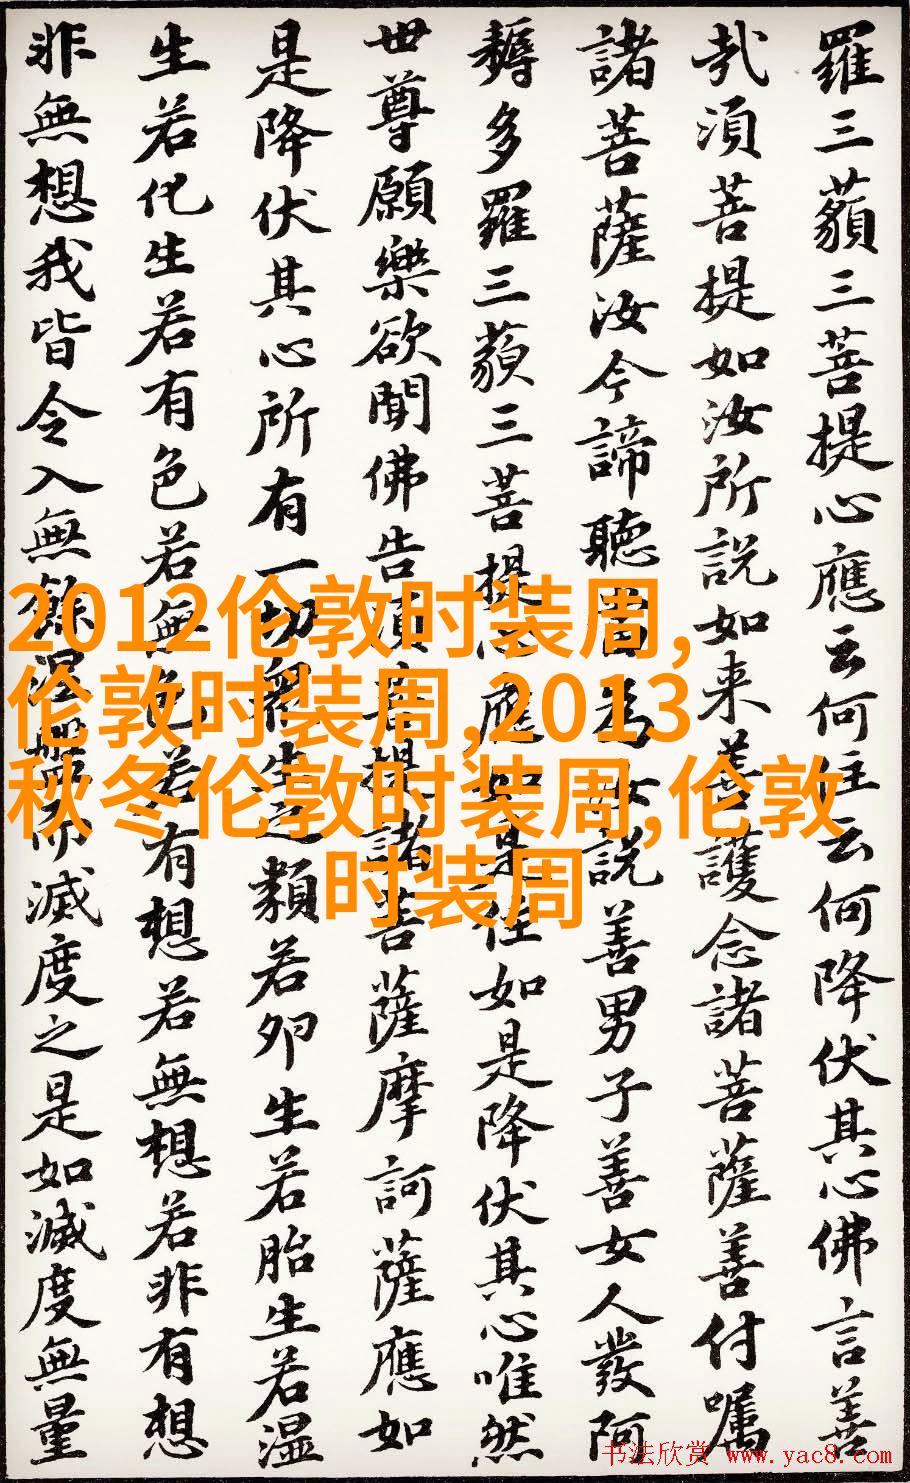 羅三藐三菩提心應云何住云何降伏其心佛言善
哉須菩提如汝所說如来善護念諸菩薩善付嘱
諸菩薩汝今諦聽當為汝說善男子善女人發阿
耨多羅三藐三菩提心應如是住如是降伏其心唯然
世尊願樂欲聞佛告須菩提諸菩薩摩訶薩應如
是降伏其心所有一切衆生之類若卵生若胎生若湿
生若化生若有色若無色若有想若無想若非有想
非無想我皆令入無餘涅槃而滅度之是如滅度無量
2012伦敦时装周,
伦敦时装周,2013
秋冬伦敦时装周,伦敦
时装周
书法欣赏 www.yac8.com